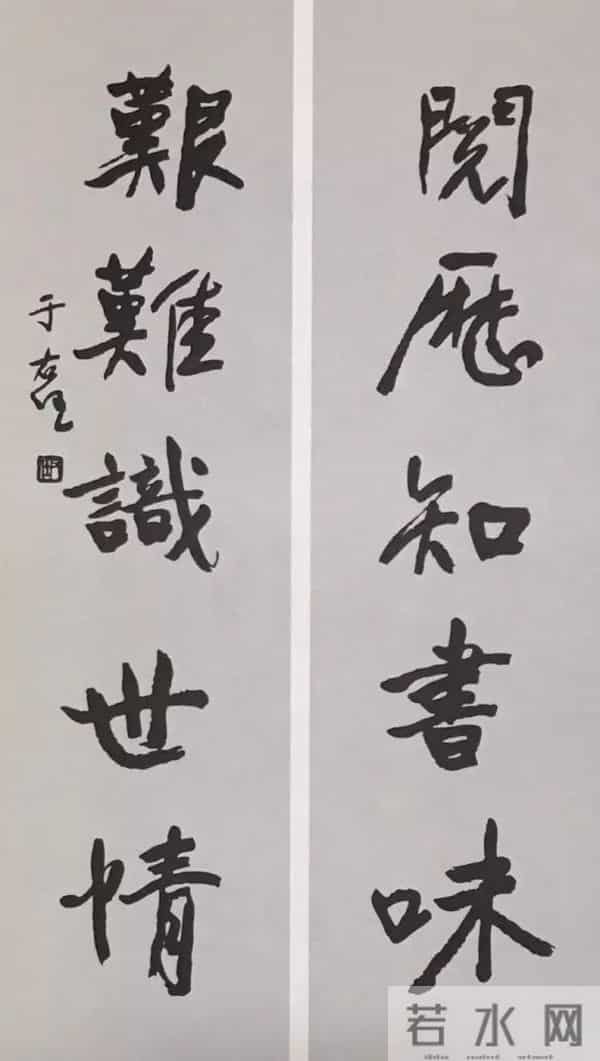 閱歷知書味
艱難識世情
于右任
若水网